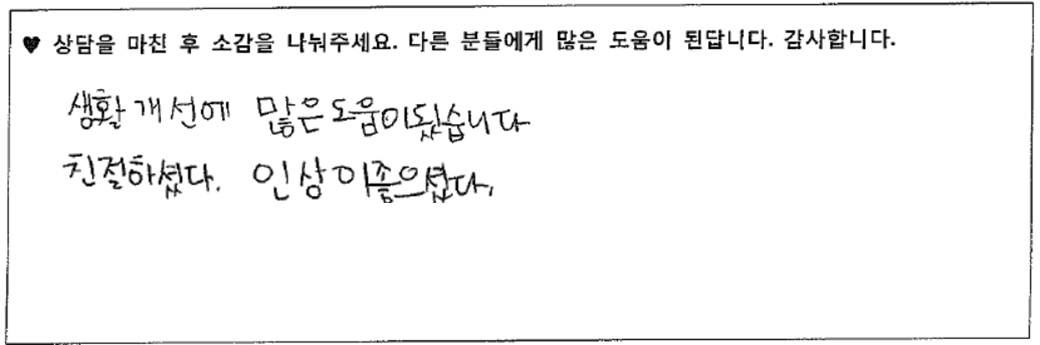 ♥ 상담을 마친 후 소감을 나눠주세요. 다른 분들에게 많은 도움이 된답니다. 감사합니다.
생활개선에 많은도움이됬습니다
친절하셨다. 인상이좋으셨다.